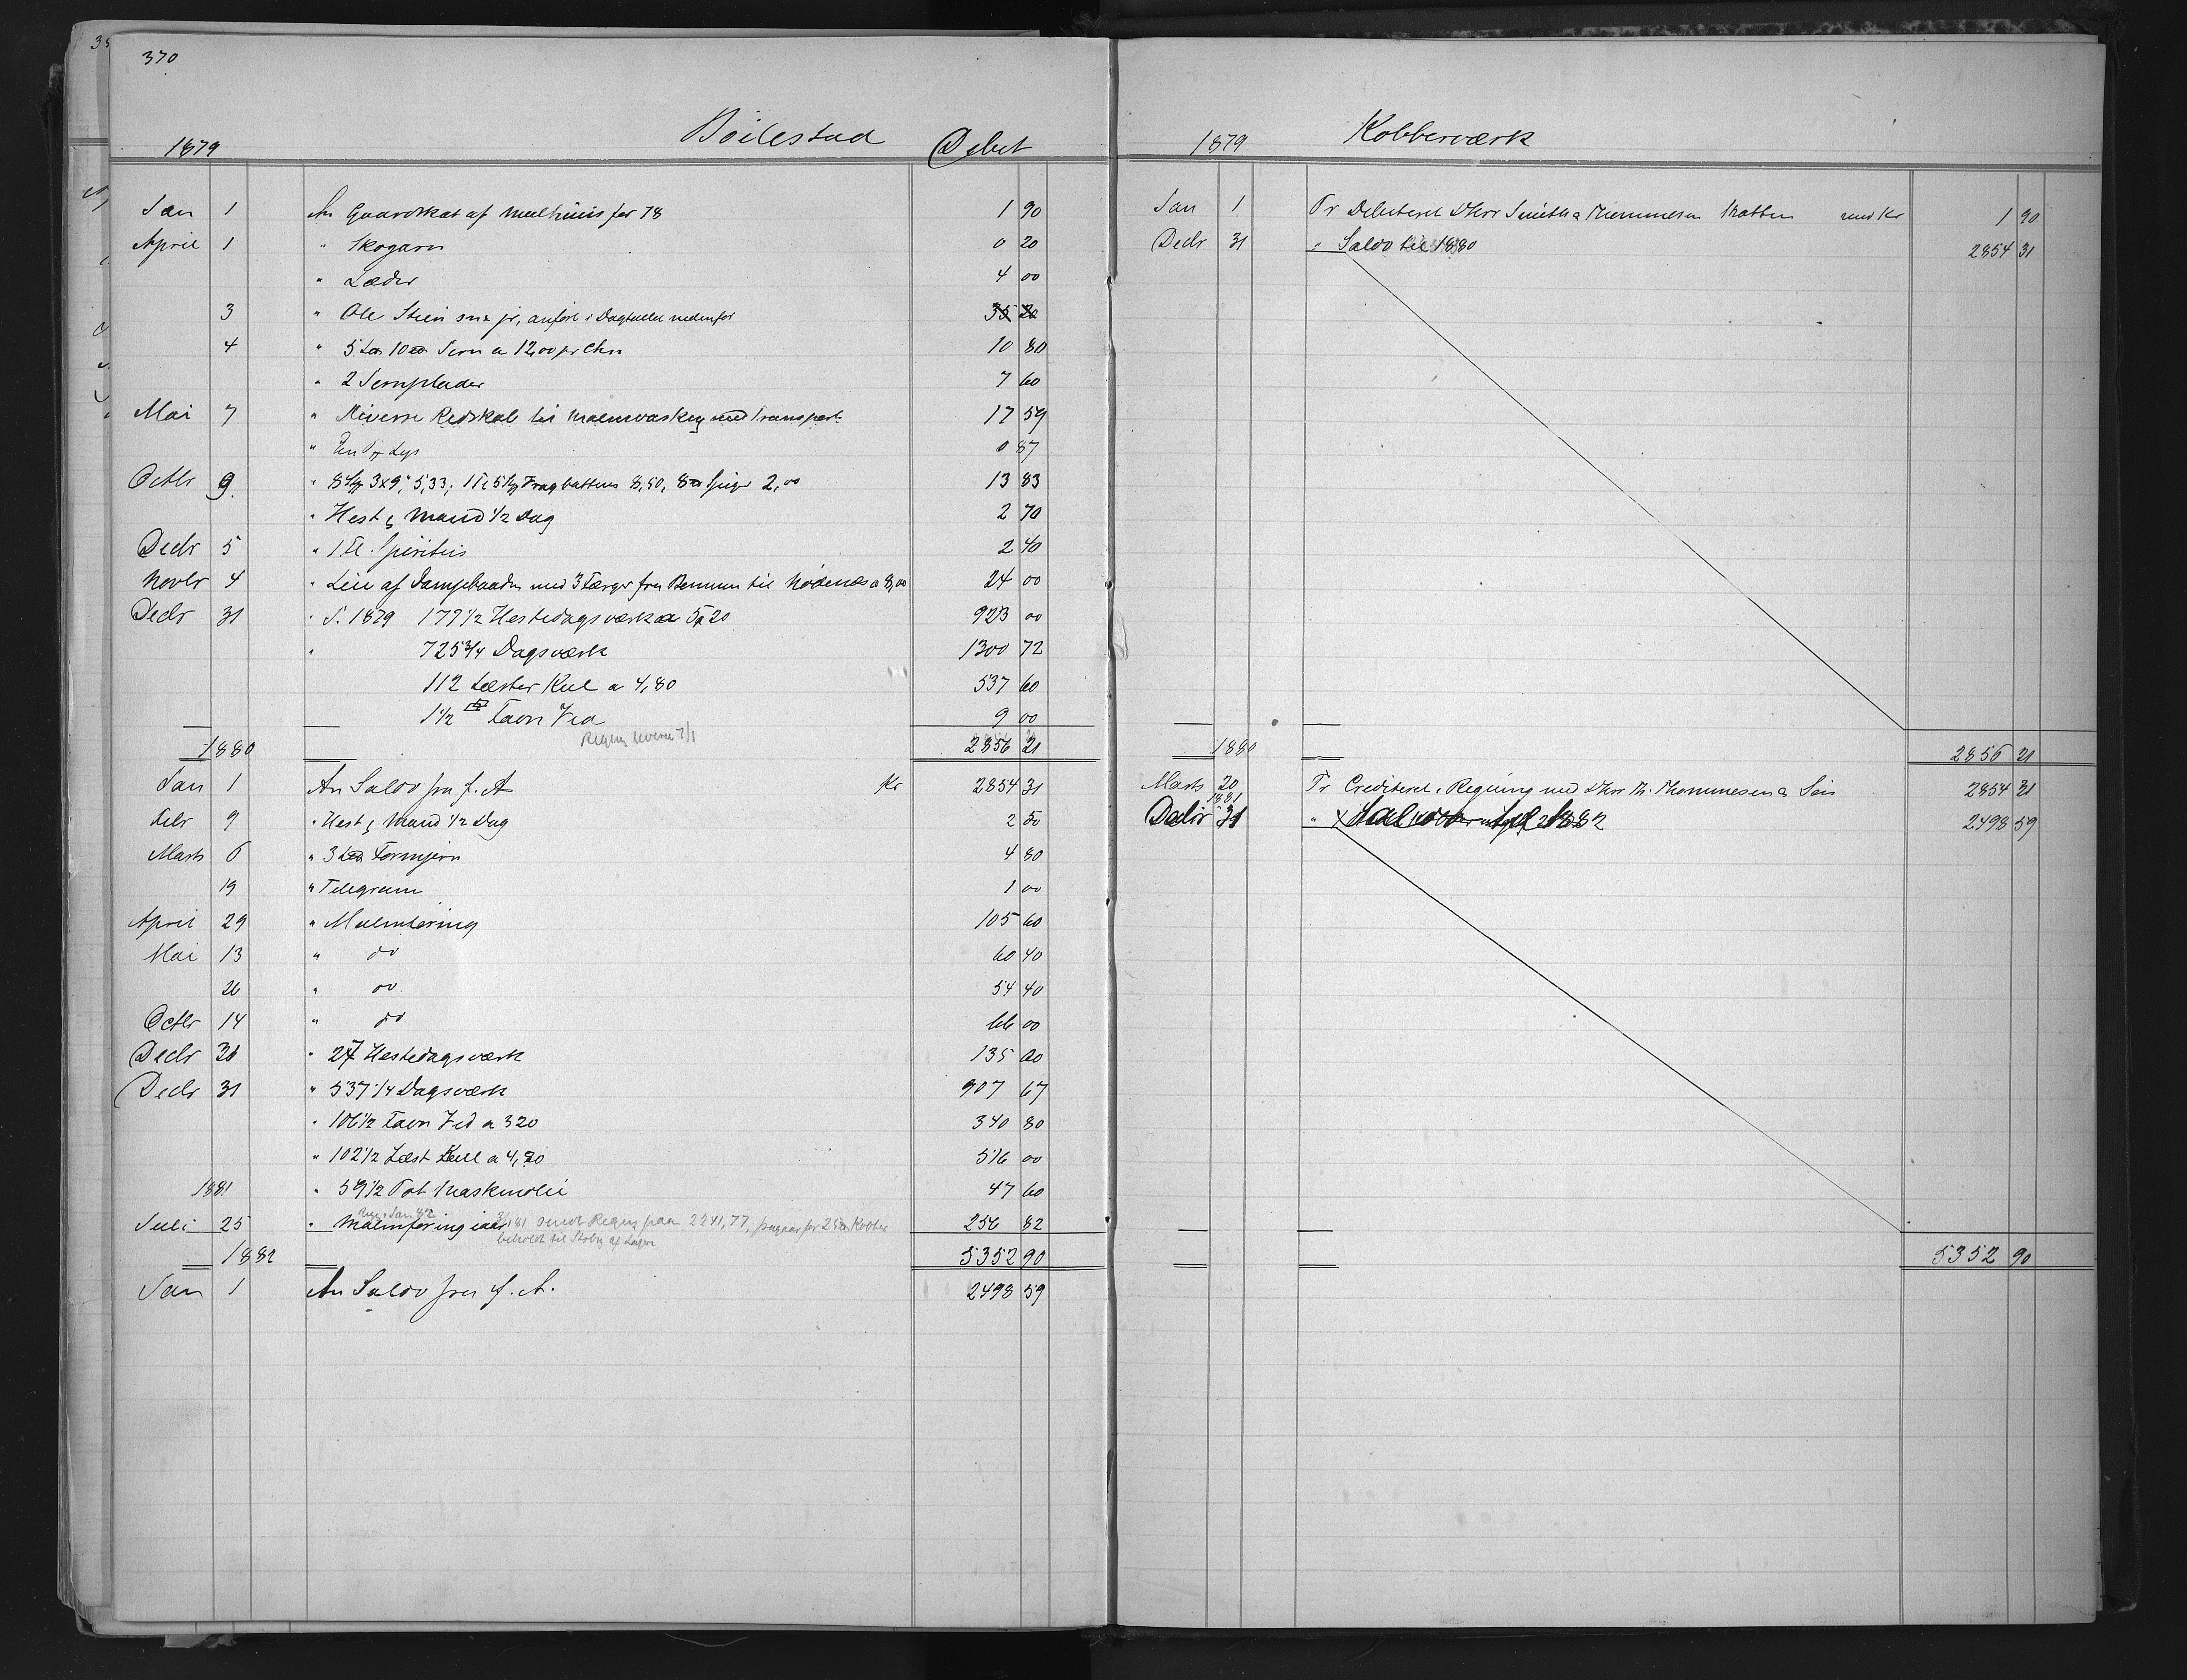 370
Böilestad Debet
1879
Jan 1 An Gaardskat af for 78 1 90
April 1 " Skogarn 0 20
" Læder 4 00
3 " Ole Steen jr, anført i Dagtallet nedenfor 35 20
4 " 5 10 Jern a 12,00 pr 10 80
" 2 Jernplader 7 60
Mai 7 " Diverse Redskab til Malmvasking med Transport 17 59
" En Lys 0 87
Octbr 9. " 3x9" 5,33; 8,50, Spiger 2,00 13 83
" Hest & Mand 1/2 Dag 2 70
Decbr 5 " 1 Fl Spiritus 2 40
Novbr 4 " Leie af Dampbaaden med 3 Færger fra til a 8,00 24 00
Decbr 31 " I 1879 177 1/2 Hestedagsværk a 5,20 923 00
" 725 3/4 Dagsværk 1300 72
112 Læster Kul a 4,80 537 60
1 1/2 Favn Ved 9 00
1880 2856 21
Jan 1 An Saldo fra f. A Kr 2854 31
Febr 9 " Hest & Mand 1/2 Dag 2 50
Marts 6 " 3 Formjern 4 80
19 " Telegram 1 00
April 29 " Malmføring 105 60
Mai 13 " do 60 40
26 " do 54 40
Octbr 14 " do 66 00
Decbr 30 " 27 Hestedagsværk 135 00
Decbr 31 " 537 1/4 Dagsværk 907 67
" 106 1/2 Favn Ved a 320 340 80
" 102 1/2 Læst Kull a 4,80 516 00
1881 " 59 1/2 Pot Maskinolie 47 60
Juli 25 " Malmføring iaar 256 82
sendt Regng paa 2241,77, for Kobber
beholdt til af Lager
1882 5352 90
Jan 1 An Saldo fra f. A. 2498 59
1879 Kobberværk
Jan 1 Pr Debiteret DHrr Smith & Thommesen med Kr 1 90
Decbr 31 " Saldo til 1880 2854 31
1880 2856 21
Marts 20 Pr Crediteret i Regning med DHrr Th. Thommesen & Søn 2854 31
1881
Decbr 31 " Saldo til 1882 2498 59
5352 90